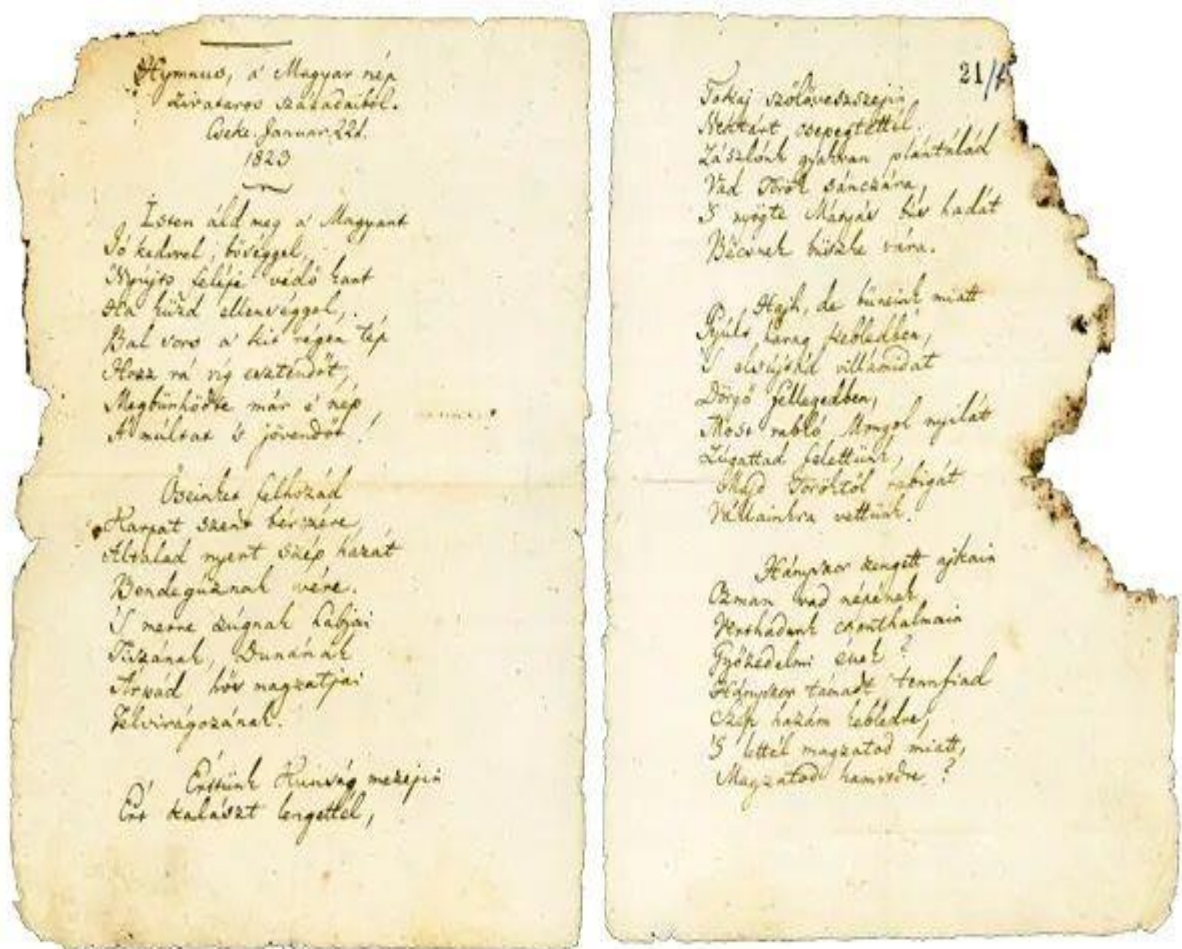 Hymnus, a' Magyar nép
zivataros századaiból.
Cseke. Januar. 22d.
1823
Isten áld meg a' Magyart
Jó kedvvel, bőséggel,
Nyújts feléje védő kart
Ha küzd ellenséggel,
Bal sors a' kit régen tép
Hozz rá víg esztendőt,
Megbünhődte már e' nép
A' múltat 's jövendőt!
Őseinket felhozád
Kárpát szent bérczére,
Általad nyert szép hazát
Bendegúznak vére.
'S merre zúgnak habjai
Tiszának, Dunának
Árpád hős magzatjai
Felvirágozának.
Értünk Kunság mezején
Ért kalászt lengettél,
21/
Tokaj szőlővesszején
Nektárt csepegtettél.
Zászlónk gyakran plántálád
Vad Török sánczára,
'S nyögte Mátyás bús hadát
Bécsnek büszke vára.
Hajh, de bűneink miatt
Gyúlt harag kebledben,
'S elsújtád villámidat
Dörgő fellegedben,
Most rabló Mongol nyilát
Zúgattad felettünk,
Majd Töröktől rabigát
Vállainkra vettünk.
Hányszor zengett ajkain
Ozman vad népének
Vert hadunk csonthalmain
Győzedelmi ének?
Hányszor támadt tennfiad
Szép hazám kebledre,
'S lettél magzatod miatt,
Magzatod hamvedre?